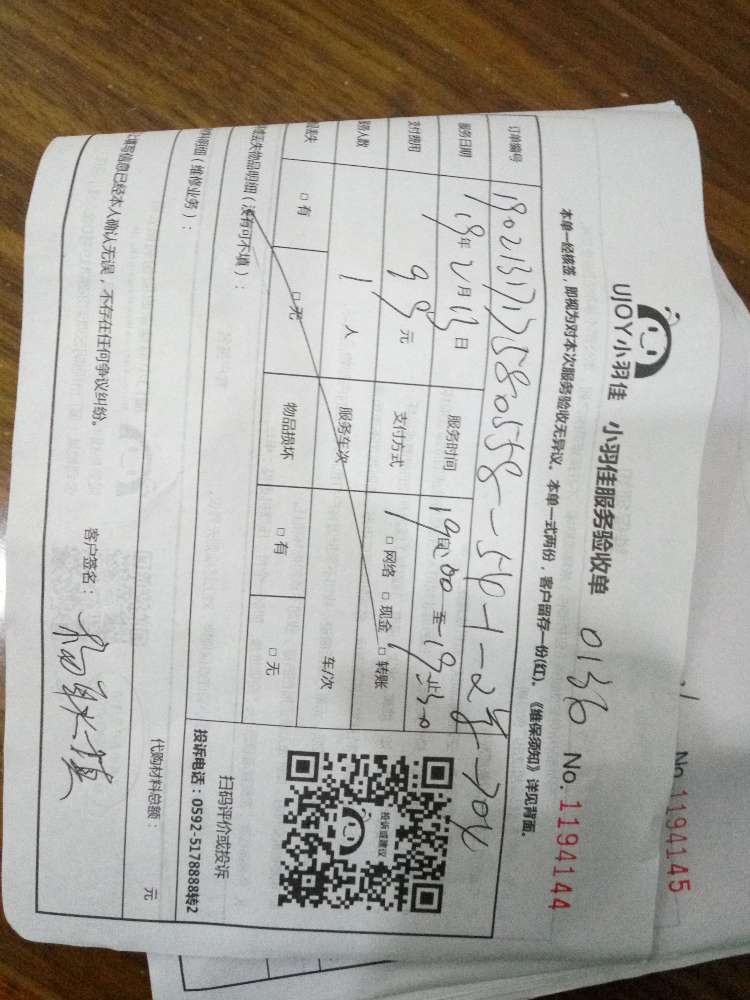 UJOY小羽佳 小羽佳服务验收单 0136 No. 1194144
No 1194145
本单一经核签，即视为对本次服务验收无异议。本单一式两份，客户留存一份(红)。《维保须知》详见背面。
订单编号
服务日期 19年2月13日 服务时间
支付费用 元 支付方式 □网络 □现金 □转账
务人数 1 人 服务车次 车/次
丢失 □有 □无 物品损坏 □有 □无
丢失物品明细（没有可不填）：
料明细（维修业务）：
代购材料总额： 元
填写信息已经本人确认无误，不存在任何争议纠纷。 客户签名：
投诉或建议
扫码评价或投诉
投诉电话：0592-5178888转2